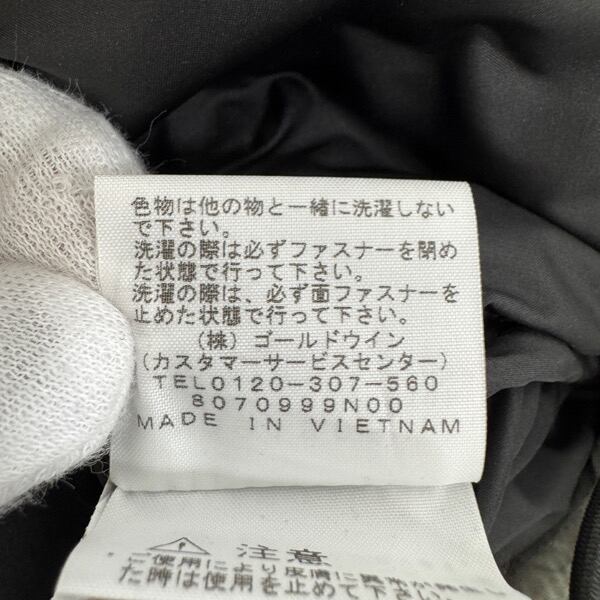 色物は他の物と一緒に洗濯しない
で下さい。
洗濯の際は必ずファスナーを閉め
た状態で行って下さい。
洗濯の際は、必ず面ファスナーを
止めた状態で行って下さい。
(株)ゴールドウイン
(カスタマーサービスセンター)
TEL0120-307-560
8070999N00
MADE IN VIETNAM
注意
ご使用により皮膚に異常が
た時は使用を止めて下さい